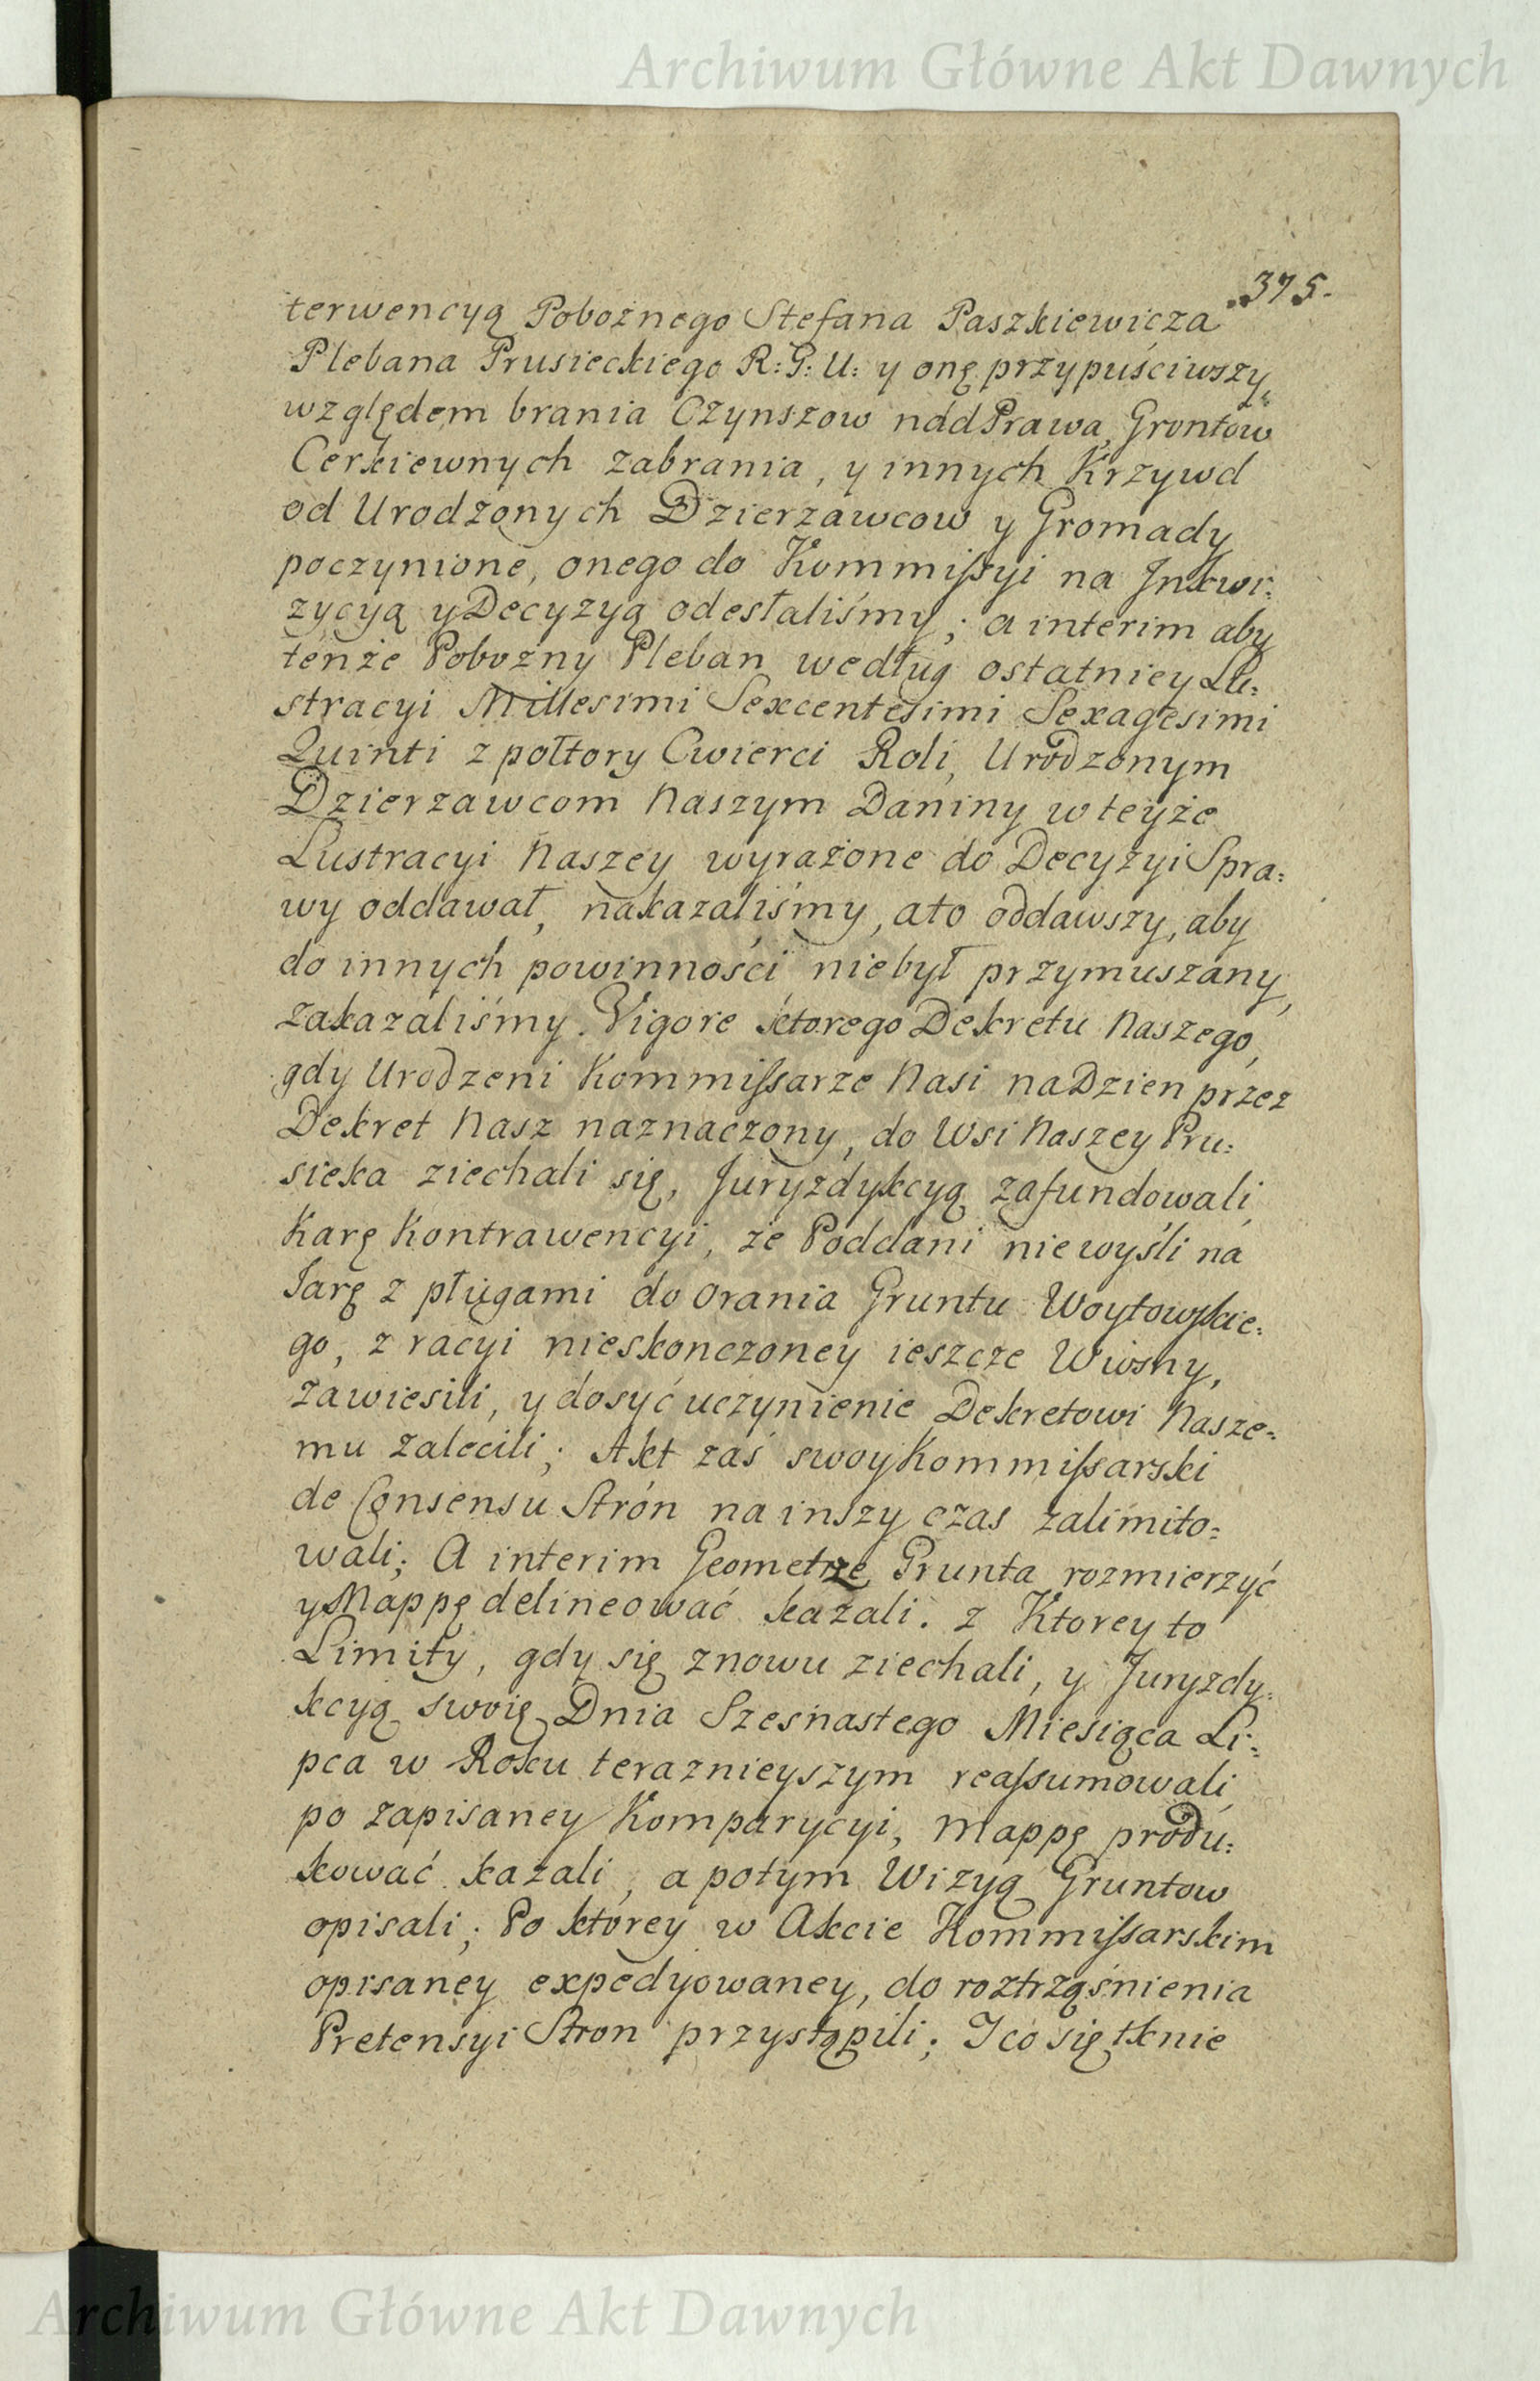 Archiwum Główne Akt Dawnych
375.
terwencyą Pobożnego Stefana Paszkiewicza
Plebana Prusieckiego R: G: U: y onę przypuściwszy,
względem brania Czynszow nad Prawa, Grontow
Cerkiewnych zabrania, y innych Krzywd
od Urodzonych Dzierzawcow y Gromady
poczynione, onego do Kommiſsyi na Jnkwi:
zycyą y Decyzyą odesłaliśmy; a interim aby
tenże Pobozny Pleban według ostatniey Lu:
stracyi Millesimi Sexcentesimi Sexagesimi
Quinti z połtory Cwierci Roli, Urodzonym
Dzierzawcom Naszym Daniny w teyże
Lustracyi Naszey wyrażone do Decyzyi Spra:
wy oddawał, nakazaliśmy, a to oddawszy, aby
do innych powinności nie był przymuszany,
zakazaliśmy. Vigore ktorego Dekretu Naszego,
gdy Urodzeni Kommiſsarze Nasi na Dzien przez
Dekret Nasz naznaczony, do Wsi Naszey Pru:
sieka ziechali się, Juryzdykcyą zafundowali,
Karę Kontrawencyi, że Poddani nie wyśli na
Jarę z pługami do orania Gruntu Woytowskie:
go, z racyi nieskonczoney ieszcze Wiosny,
zawiesili, y dosyć uczynienie Dekretowi Nasze:
mu zalecili; Akt zaś swoy Kommiſsarski
de Consensu Strón na inszy czas zalimito:
wali; A interim Geometrze Grunta rozmierzyć
y Mappę delineować kazali. z Ktorey to
Limity, gdy się znowu ziechali, y Juryzdy:
kcyą swoię Dnia Szesnastego Miesiąca Li:
pca w Roku teraznieyszym reaſsumowali,
po zapisaney Komparycyi, Mappę produ:
kować kazali, a potym Wizyą Gruntow
opisali; Po ktorey w Akcie Kommiſsarskim
opisaney expedyowaney, do roztrząśnienia
Pretensyi Stron przystąpili; I co się tknie
Archiwum Główne Akt Dawnych